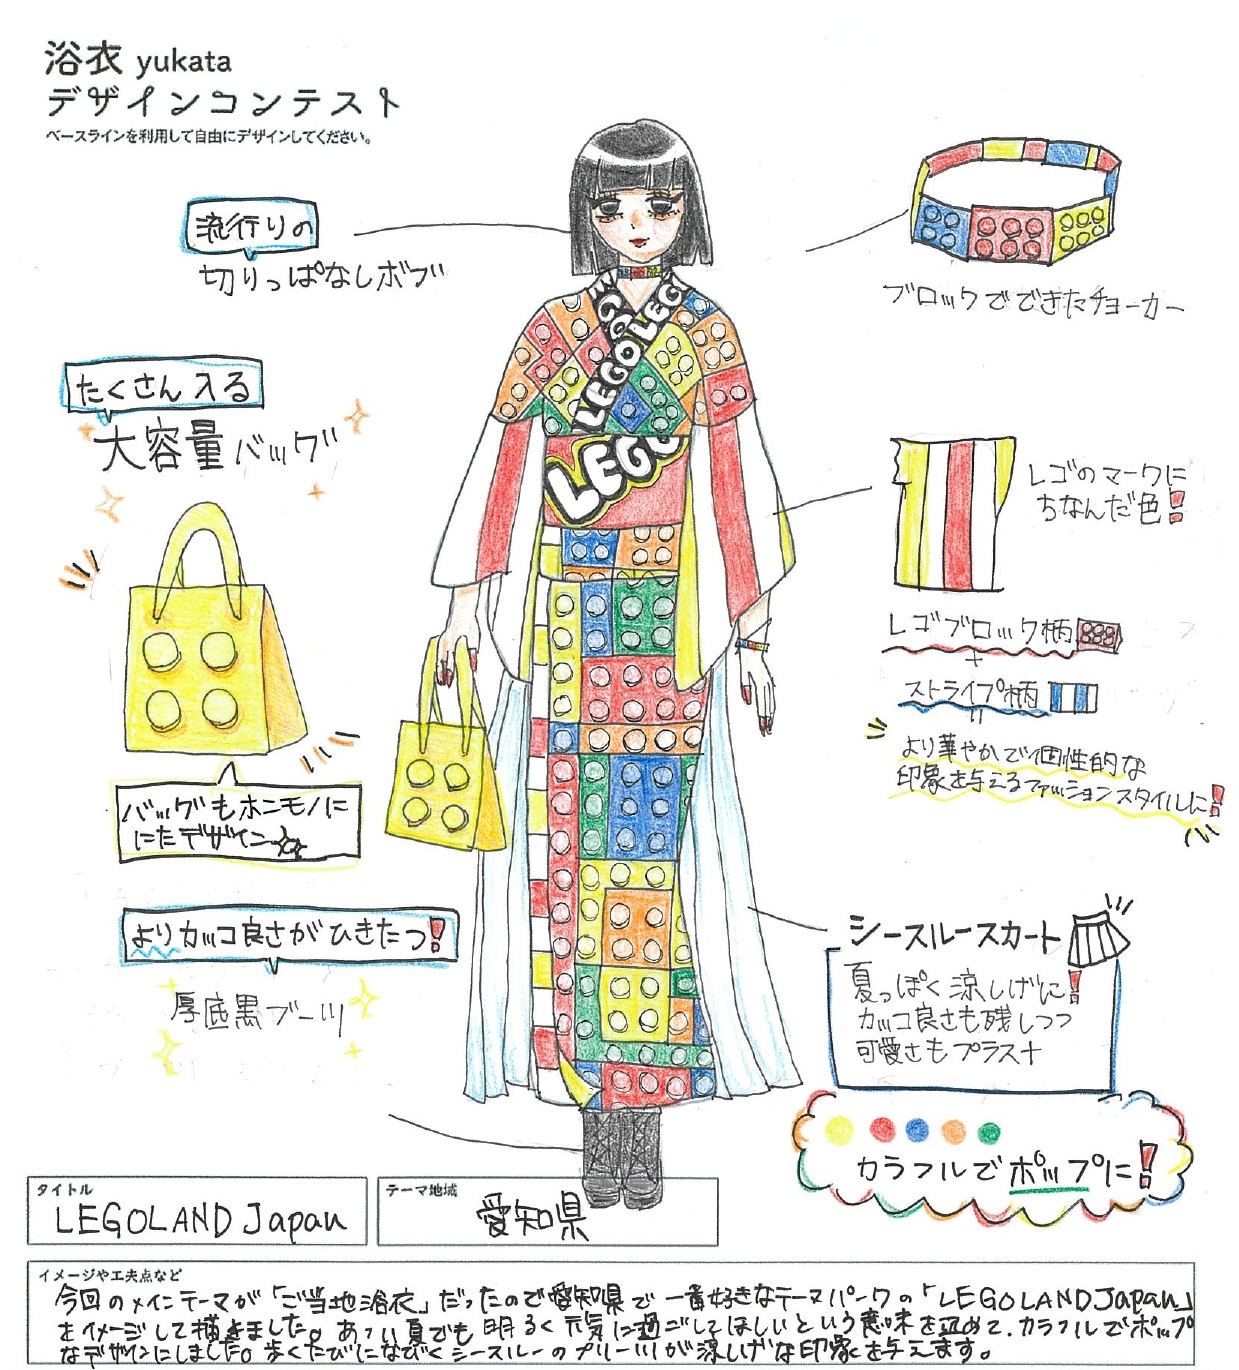 浴衣 yukata
デザインコンテスト
ベースラインを利用して自由にデザインしてください。
流行りの
切りっぱなしボブ
ブロックでできたチョーカー
たくさん入る
大容量バッグ
LEGOLEG
LEGO
LEGO
レゴのマークに
ちなんだ色!
レゴブロック柄
+
ストライプ柄
=
より華やかで個性的な
印象を与えるファッションスタイルに!
バッグもホンモノに
にたデザイン
よりカッコ良さがひきたつ!
厚底黒ブーツ
シースルースカート
夏っぽく涼しげに!
カッコ良さも残しつつ
可愛さもプラス+
カラフルでポップに!
タイトル
LEGOLAND Japan
テーマ地域
愛知県
イメージや工夫点など
今回のメインテーマが「ご当地浴衣」だったので愛知県で一番好きなテーマパークの「LEGOLAND Japan」
をイメージして描きました。あつい夏でも明るく元気に過ごしてほしいという意味を込めて、カラフルでポップ
なデザインにしました。歩くたびになびくシースルーのプリーツが涼しげな印象を与えます。